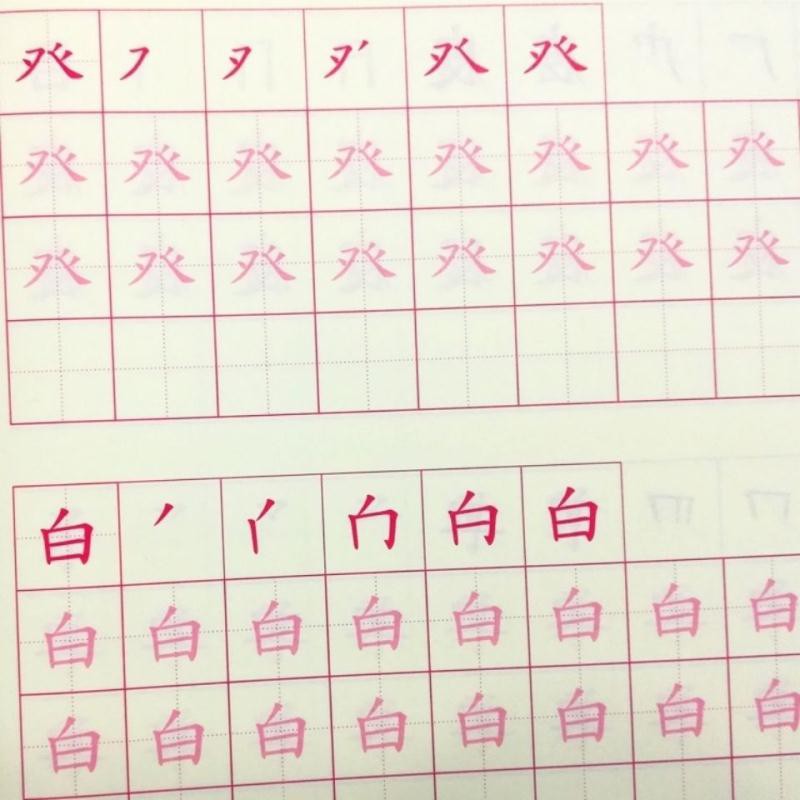 癶 癶
癶 癶 癶 癶 癶 癶 癶 癶
癶 癶 癶 癶 癶 癶 癶 癶
白 白
白 白 白 白 白 白 白 白
白 白 白 白 白 白 白 白